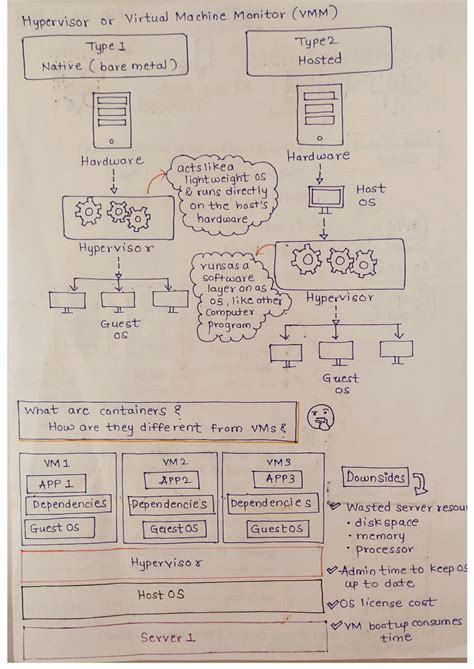 Hypervisor or Virtual Machine Monitor (VMM)
Type 1
Native (bare metal)
Type2
Hosted
Hardware
Hardware
acts like a
lightweight OS
& runs directly
on the host's
hardware.
Host
OS
Hypervisor
runs as a
software
layer on as
OS, like other
Computer
program.
Hypervisor
Guest
OS
Guest
OS
What are containers ?
How are they different from VMs ?
VM 1
APP 1
Dependencies
Guest OS
VM 2
APP2
Dependencies
Guest OS
VM3
APP3
Dependencies
Guest OS
Hypervisor
Host OS
Server 1
Downsides
✓ Wasted server resou
• disk space
• memory
• processor
✓ Admin time to keep OS
up to date
✓ OS license cost
✓ VM bootup consumes
time